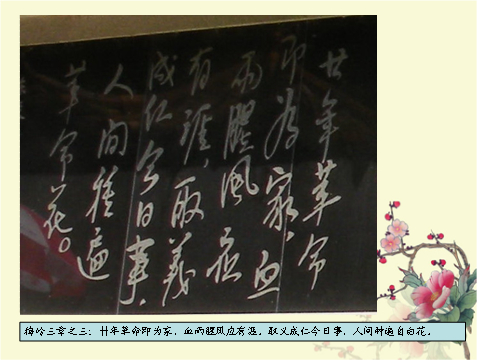 廿年革命
即為家,血
雨腥風应
有涯,取義
成仁今日事,
人间種遍
革命花。
梅岭三章之三:廿年革命即为家,血雨腥风应有涯。取义成仁今日事,人间种遍自由花。